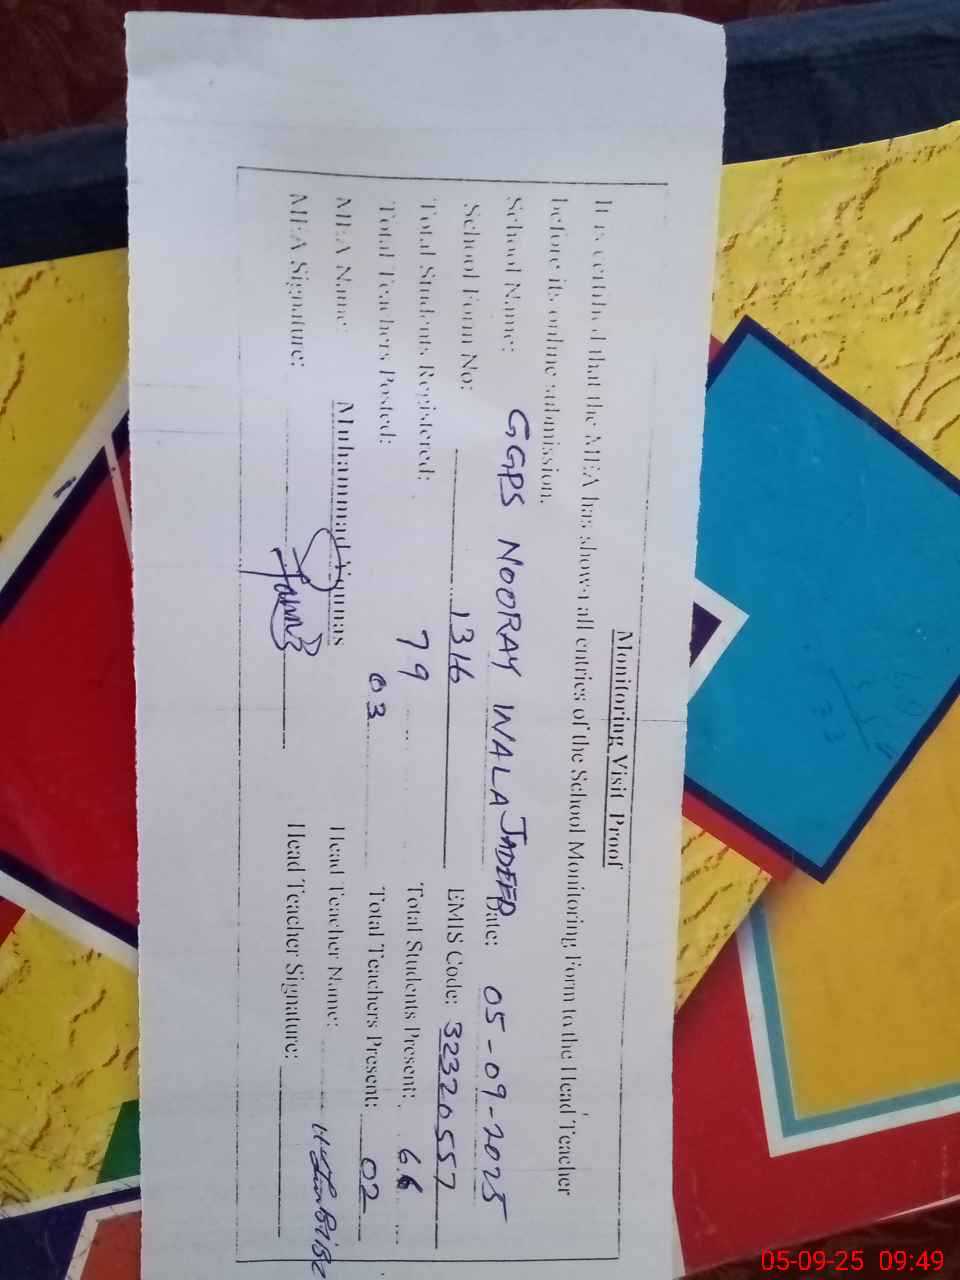 Monitoring Visit Proof
It is certified that the MEA has shown all entries of the School Monitoring Form to the Head Teacher
before its online submission.
School Name: GGPS NOORAY WALA JADEED Date: 05-09-2025
School Form No: 1316 EMIS Code: 32320557
Total Students Registered: 79 Total Students Present: 66
Total Teachers Posted: 03 Total Teachers Present: 02
MEA Name: Muhammad Younas Head Teacher Name:
MEA Signature: Head Teacher Signature:
05-09-25 09:49